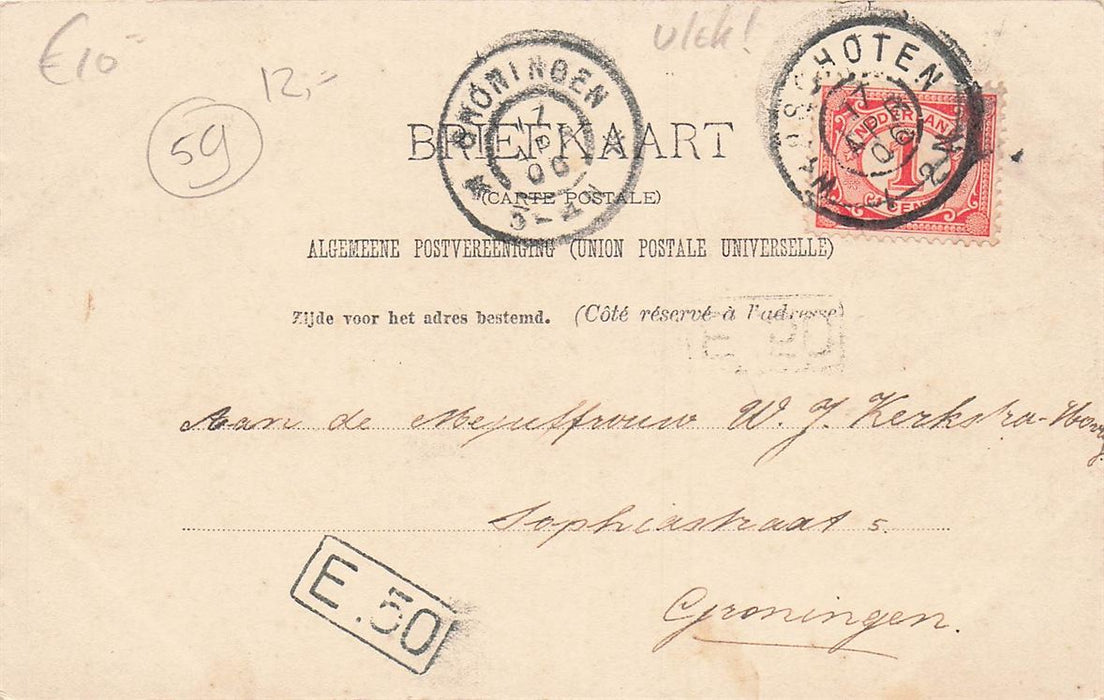 €10- 12,- vlek!
59
GRONINGEN 17 AP 00
HOTEN 17 AP 00
NEDERLAND 1 CENT
BRIEFKAART
(CARTE POSTALE)
ALGEMEENE POSTVEREENIGING (UNION POSTALE UNIVERSELLE)
Zijde voor het adres bestemd. (Côté réservé à l'adresse)
Aan de Mejuffrouw W. J. Kerkstra-
Sophiastraat 5.
E.50
Groningen.